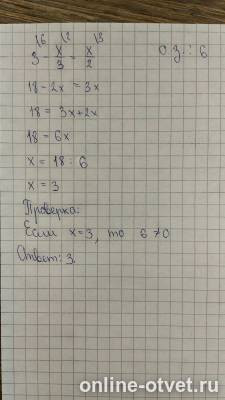 \6 \2 \3
3 - x/3 = x/2 о з.: 6
18 - 2x = 3x
18 = 3x+2x
18 = 6x
x = 18 : 6
x = 3
Проверка:
Если x=3, то 6 ≠ 0
Ответ: 3.
online-otvet.ru